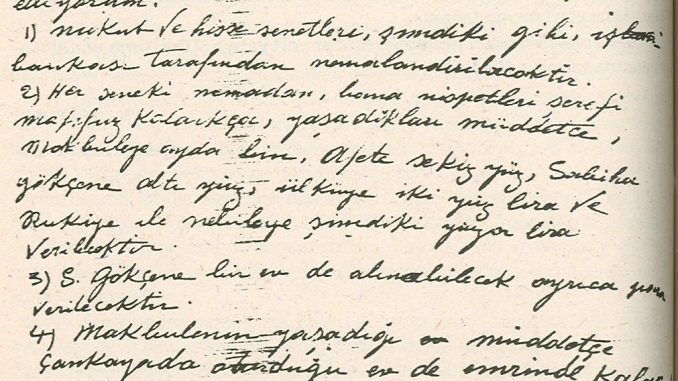 ediyorum.
1) nükut ve hisse senetleri, şimdiki gibi, iş
bankası tarafından nemalandırılacaktır.
2) Her seneki nemadan, bana nispetleri şerefi
mahfuz kaldıkça, yaşadıkları müddetçe,
Makbuleye ayda bin, Afete sekiz yüz, Sabiha
gökçene altı yüz, ülküye iki yüz lira ve
Rukiye ile nebileye şimdiki yüzer lira
verilecektir.
3) S. Gökçene bir ev de alınabilecek ayrıca para
verilecektir.
4) Makbulenin yaşadığı müddetçe
Çankayada oturduğu ev de emrinde